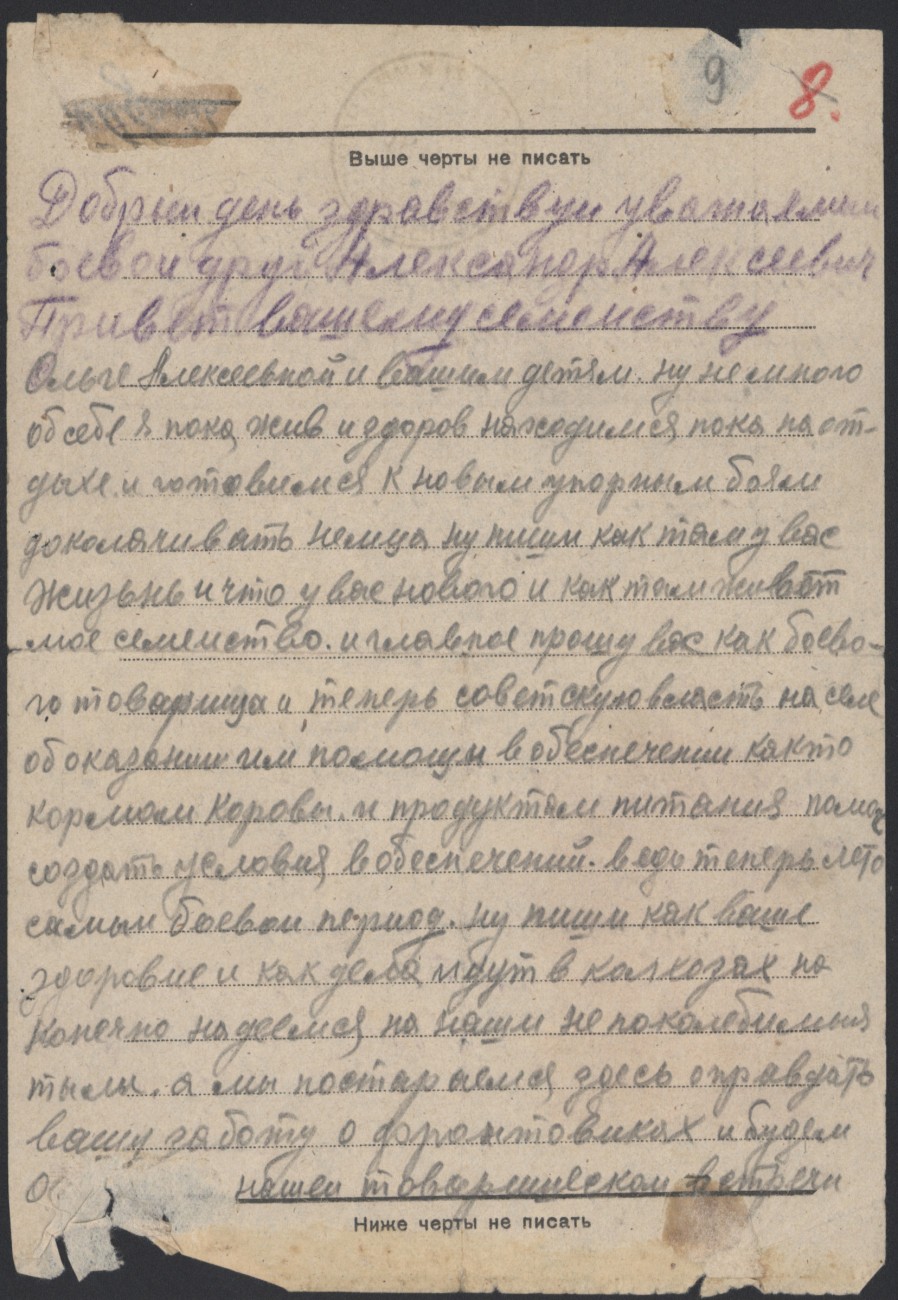 9
8.
Выше черты не писать
Добрıи день здравствуи уважаемыи
боевои друг Александр Алексеевич
Привет вашему семеиству
Ольге Алексеевной и вашим детям. ну немного
об себе я пока жив и здоров находимся пока на от-
дыхе. и готовимся к новым упорным боям
доколачивать немца ну пиши как там у вас
жизьнь и что у вас нового и как там живёт
мое семеиство. и главное прошу вас как боево-
го товарища и теперь советскую власть на селе
об оказании им помощи в обеспечении как то
кормом коровы. и продуктам питания
создать условия в обеспечений. ведь теперь лето
самыи боевои период. ну пиши как ваше
здоровие и как дела идут в колхозах но
конечно надеемся на наши непоколебимыя
тылы. а мы постараемся здесь оправдать
вашу заботу о фронтовиках и будем
нашеи товарищескои встречи
Ниже черты не писать